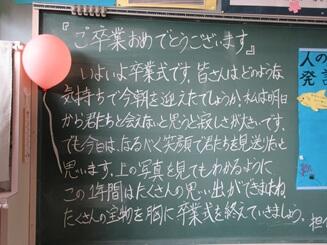 『ご卒業おめでとうございます』
いよいよ卒業式です。皆さんはどのような
気持ちで今朝を迎えたでしょうか。私は明日
から君たちと会えないと思うと寂しさが大きいです。
でも今日は、なるべく笑顔で君たちを見送りたいと
思います。上の写真を見てもわかるように
この1年間はたくさんの思い出ができましたね
たくさんの宝物を胸に卒業式を終えていきましょう。
担
人の
発言